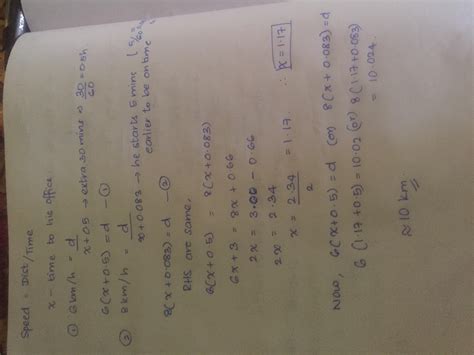 Speed = Dist/Time
x - time to his office.
① 6km/h = d/x+0.5 → extra 30 mins ⇒ 30/60 = 0.5h
6(x+0.5) = d - ①
② 8km/h = d/x+0.083 → he starts 5 mins
earlier to be on time
8(x+0.083) = d - ②
RHS are same,
6(x+0.5) = 8(x+0.083)
6x+3 = 8x+0.66
2x = 3.00 - 0.66
2x = 2.34
x = 2.34/2 = 1.17. ∴ x=1.17
Now, 6(x+0.5)=d (or) 8(x+0.083)=d
6(1.17+0.5)=10.02 (or) 8(1.17+0.083)
= 10.024.
≈10 km